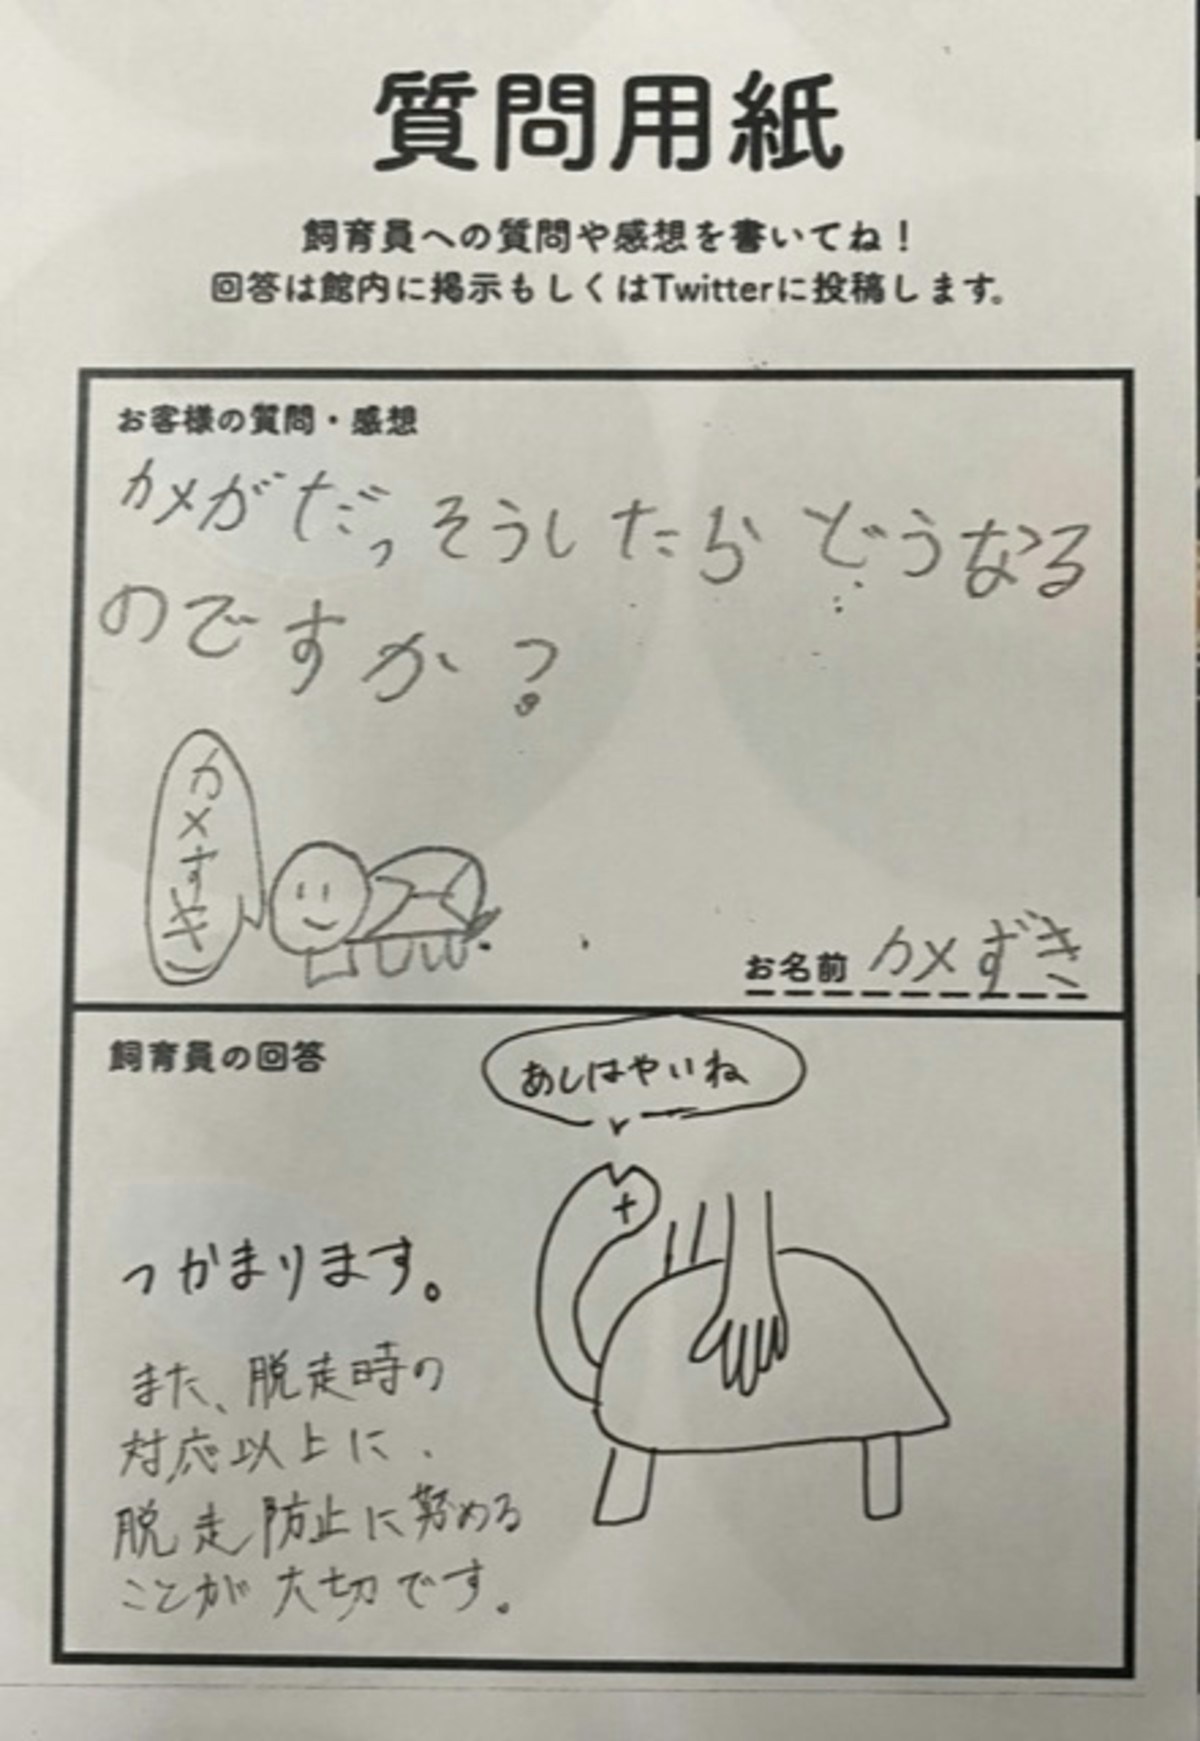 質問用紙
飼育員への質問や感想を書いてね！
回答は館内に掲示もしくはTwitterに投稿します。
お客様の質問・感想
カメがだっそうしたらどうなる
のですか？
カメすき
お名前 カメずき
飼育員の回答
あしはやいね
つかまります。
また、脱走時の
対応以上に、
脱走防止に努める
ことが大切です。